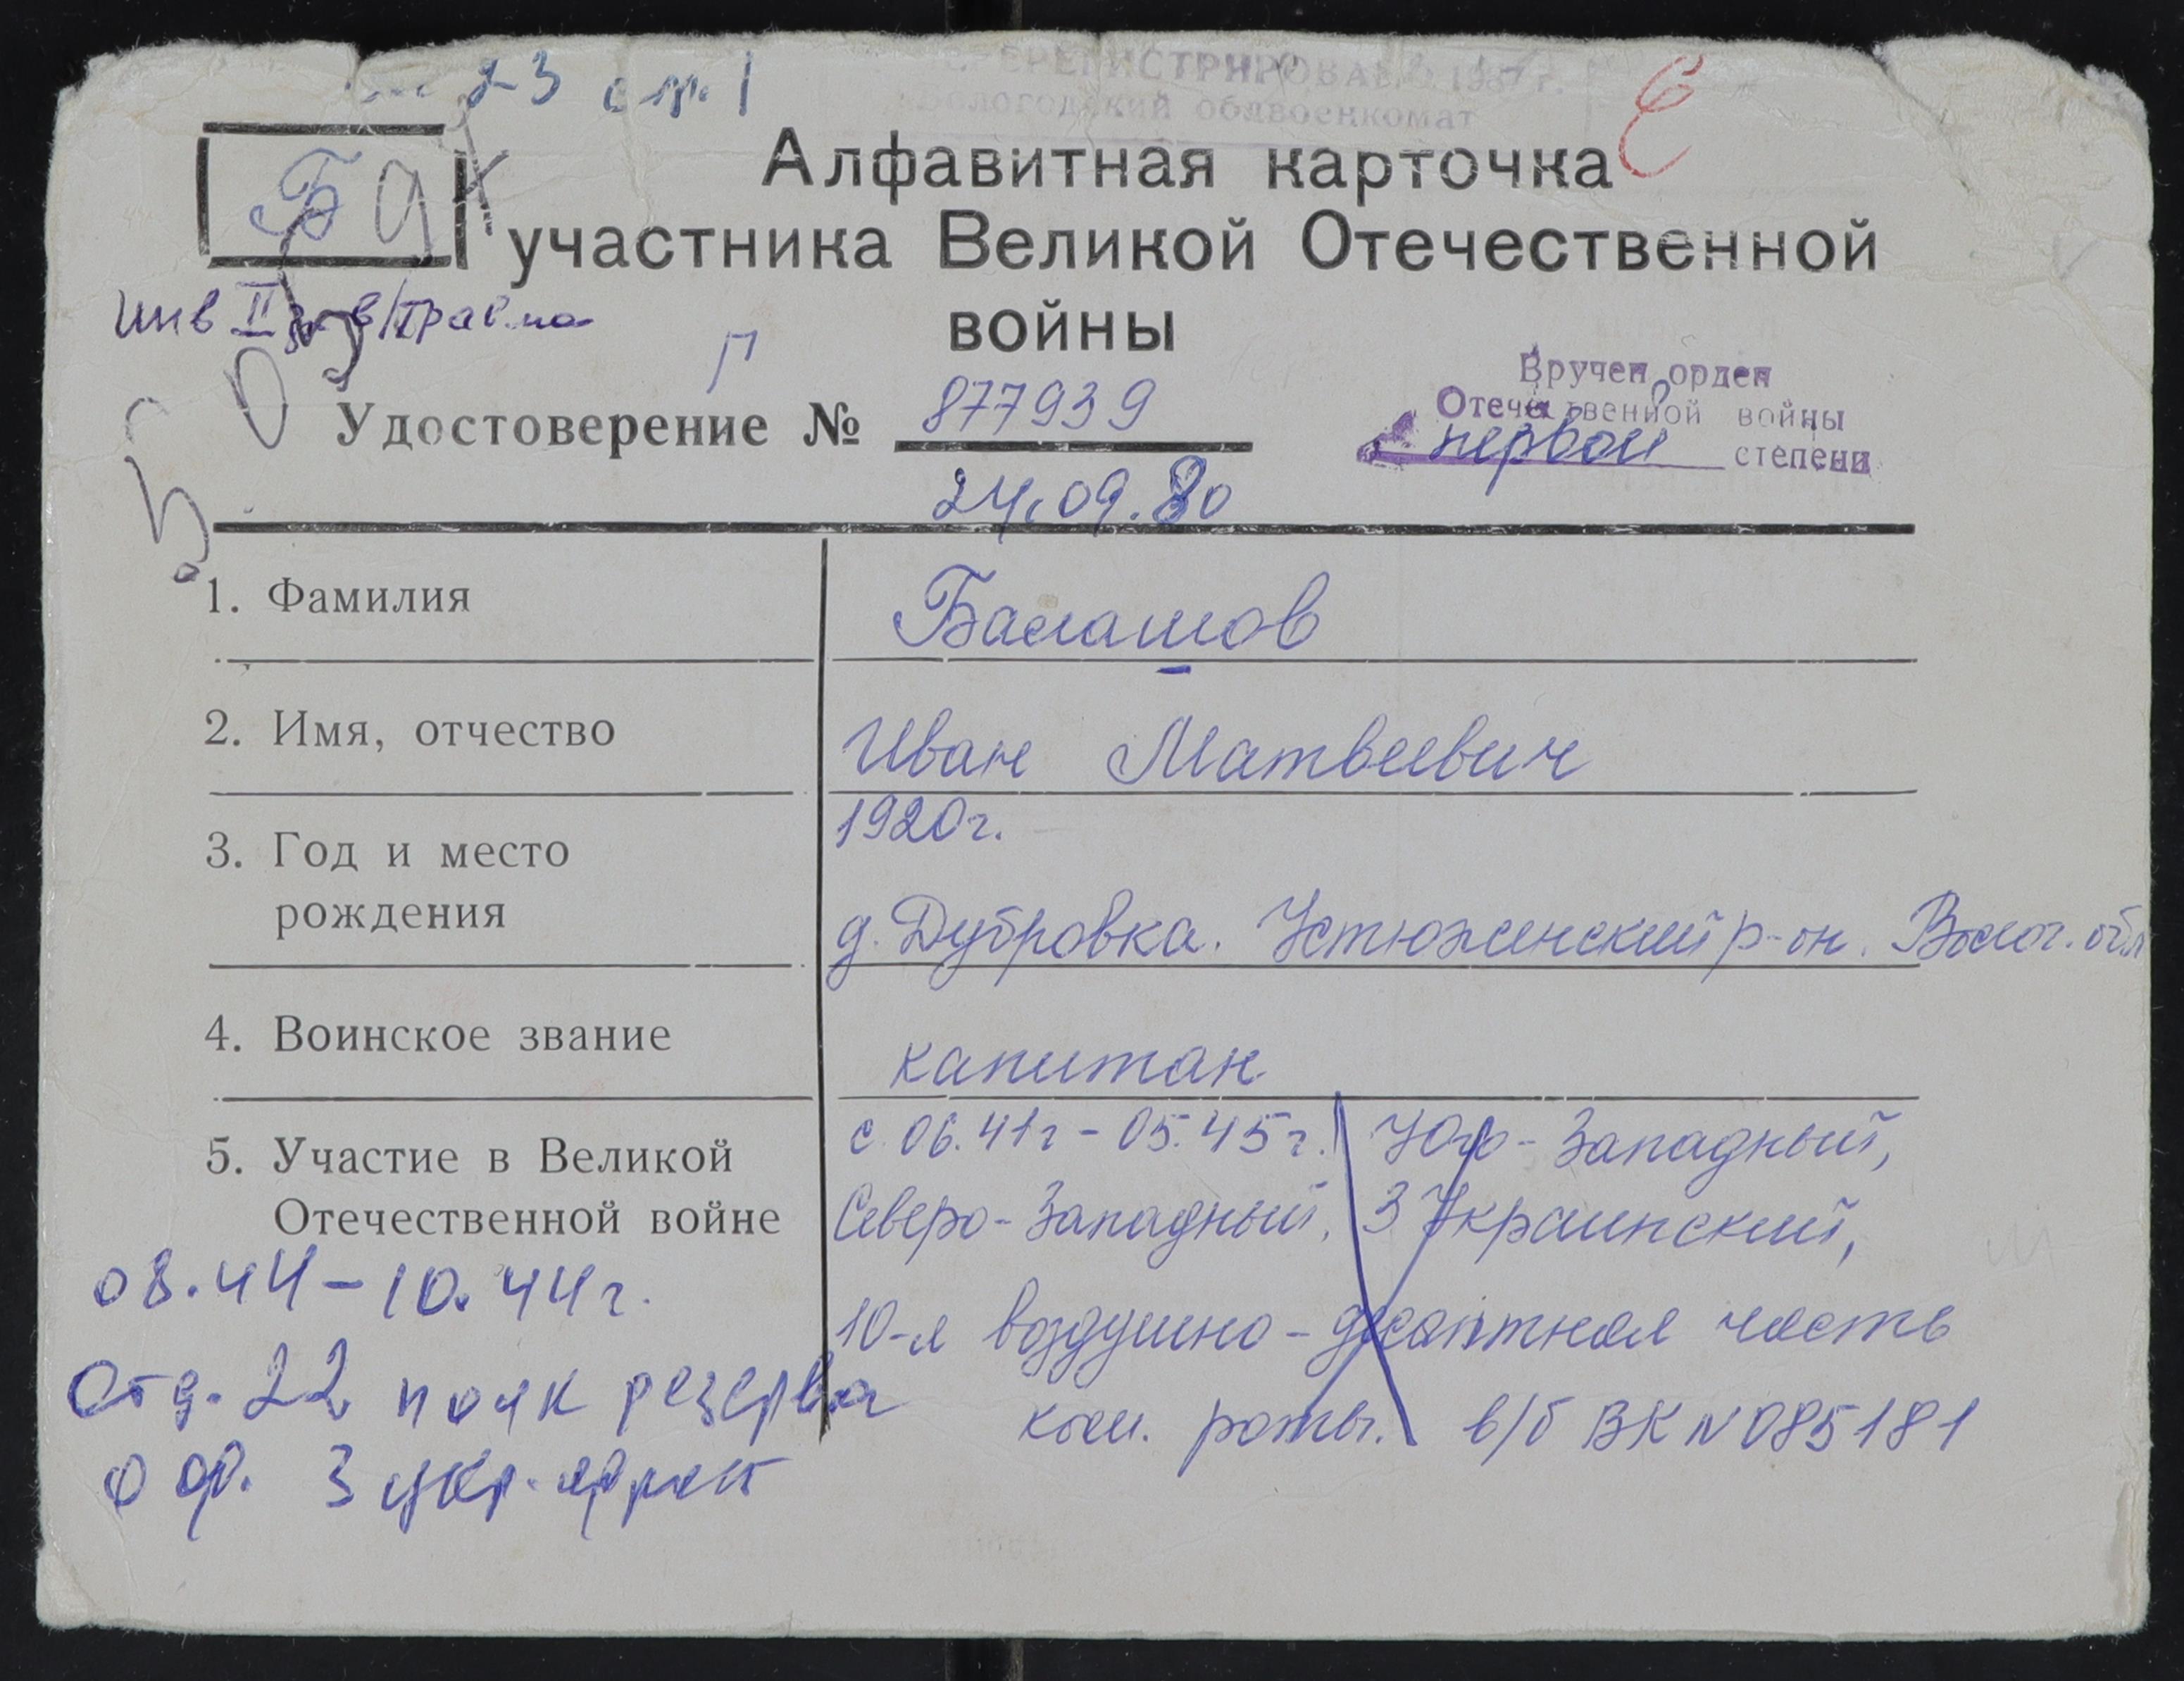 23 стр. 1
ПЕРЕРЕГИСТРИРОВАНО 1987 г.
Вологодский облвоенкомат
Алфавитная карточка
Б
участника Великой Отечественной
войны
инв II в/травма
Вручен орден
Отечественной войны
первой степени
Удостоверение № 877939
24.09.80
1. Фамилия Балашов
2. Имя, отчество Иван Матвеевич
3. Год и место рождения 1920г.
д. Дубровка. Устюженский р-он. Волог. обл
4. Воинское звание капитан
5. Участие в Великой Отечественной войне
с 06.41г - 05.45г. Юго-Западный,
Северо-Западный, 3 Украинский,
10-я воздушно-десантная часть
ком. роты. в/б ВК N 085181
08.44-10.44г.
Отд. 22 полк резерва
оф. 3 укр. фронт